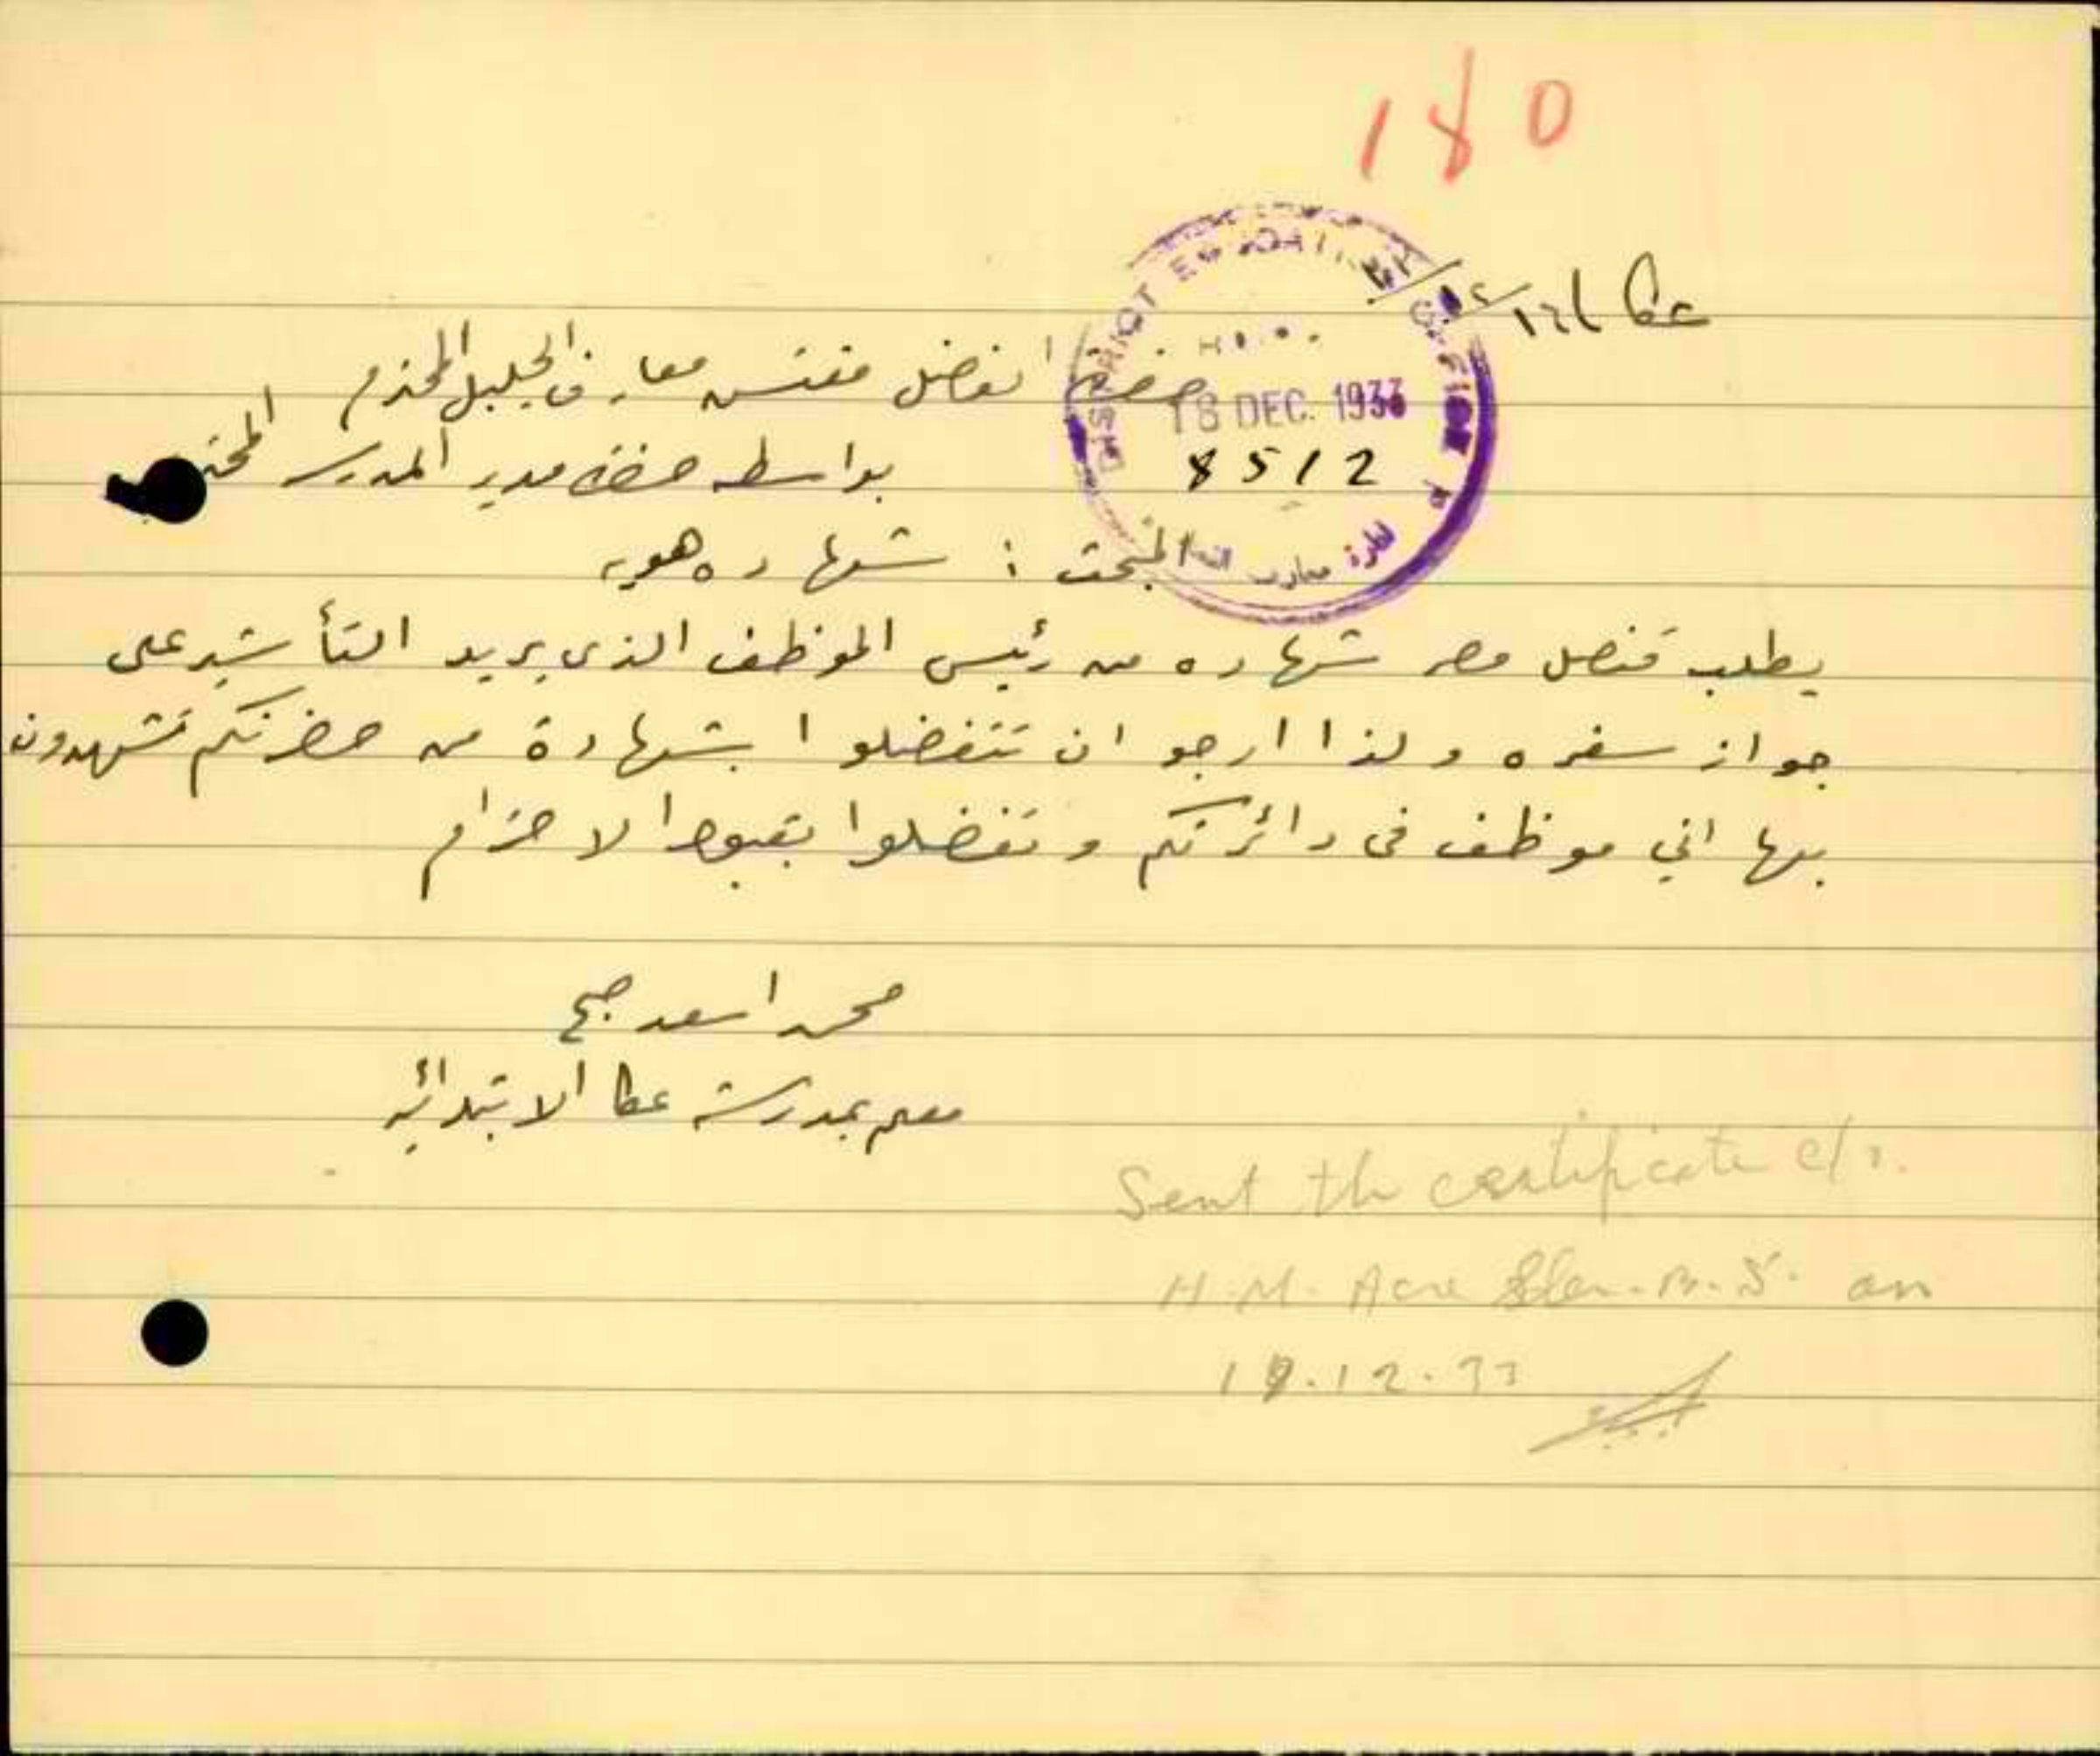 180
عكا
DISTRICT EDUCATION OFFICE
18 DEC. 1933
8512
حضرة الفاضل مفتش معارف الجليل المحترم
بواسطه حضرة مدير المدرسه
المبحث : شهاده هويه
يطلب قنصل مصر شهاده من رئيس الموظف الذي يريد التأشير على
جواز سفره ولذا ارجو ان تتفضلوا بشهادة من حضرتكم تشهدون
بها اني موظف في دائرتكم وتفضلوا بقبول الاحترام
محمد اسعد
معلم بمدرسة عكا الابتدائيه
Sent the certificate c/o.
H.M. Acre B.S. on
19.12.33